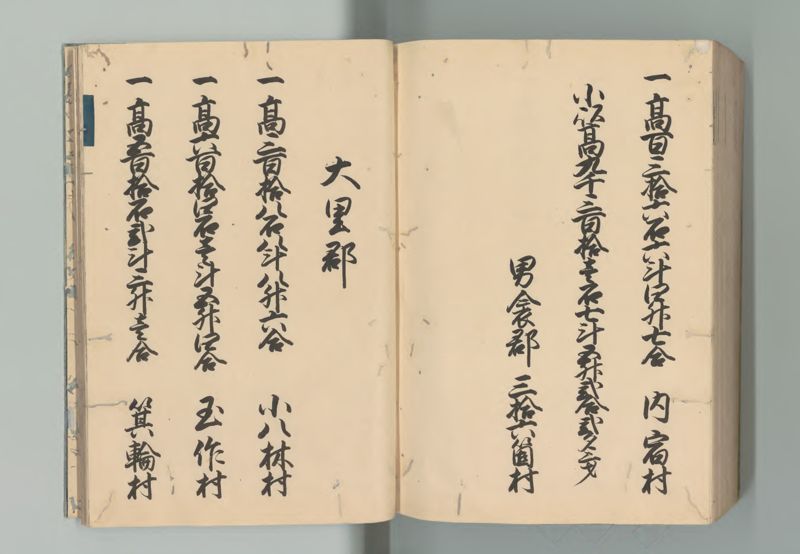 一高百三拾六石六斗四升七合 内宿村
小以高九千三百拾壱石七斗五升弐合弐夕
男衾郡 三拾六箇村
大里郡
一高三百拾八石八斗八升六合 小八林村
一高六百拾四石壱斗五升四合 玉作村
一高五百拾石弐斗三升壱合 箕輪村